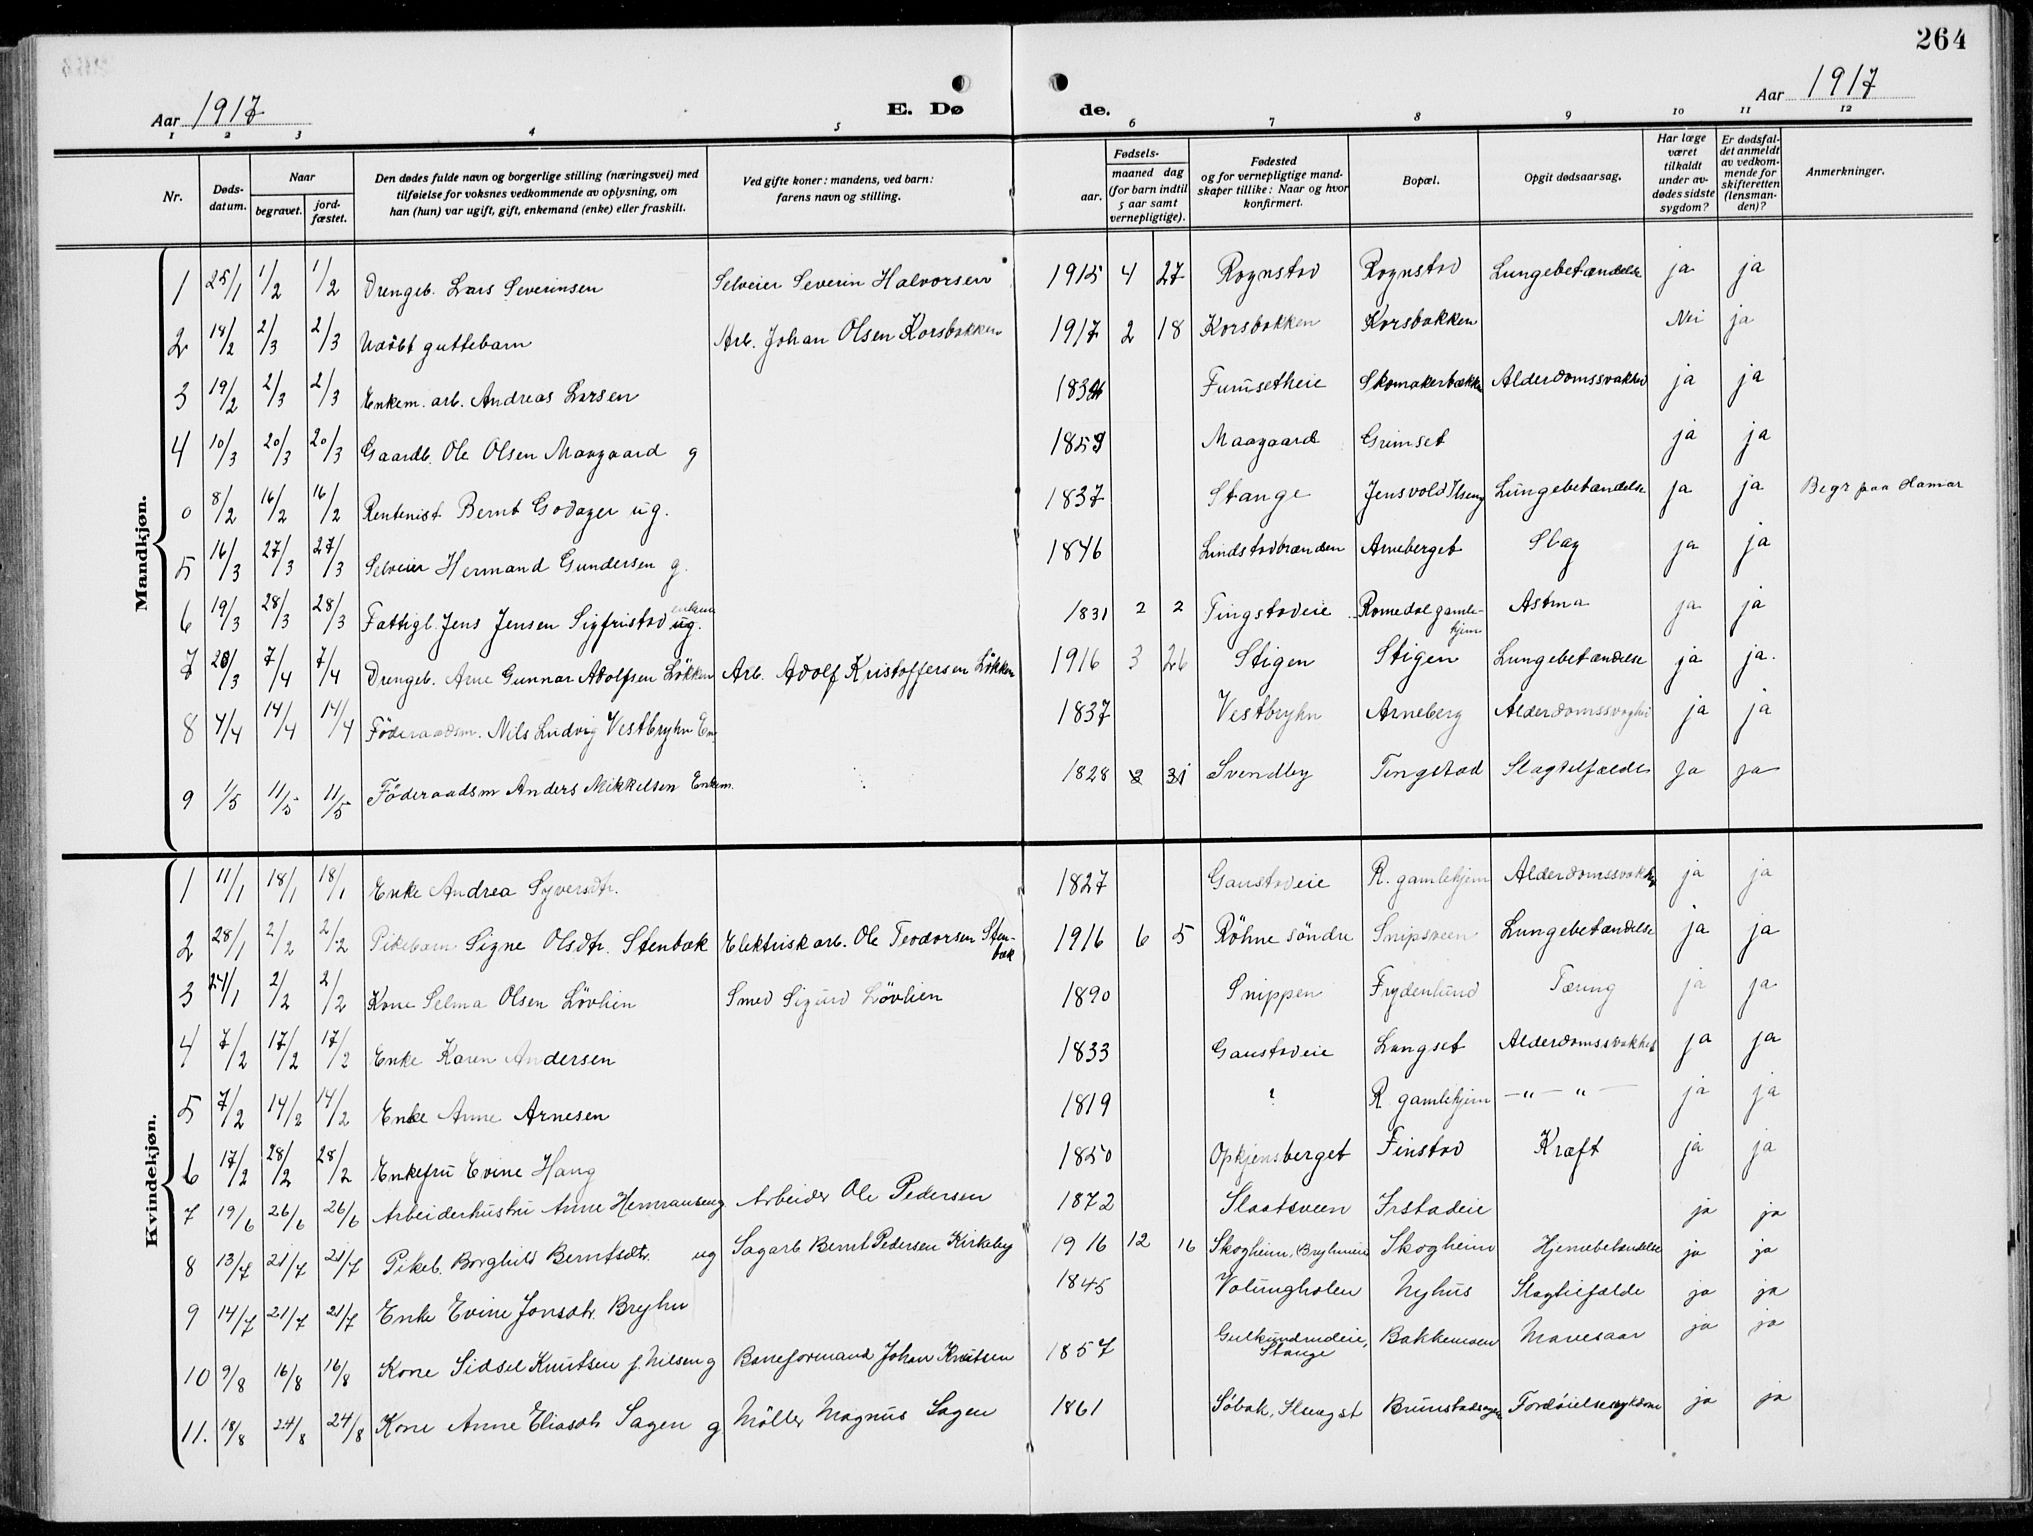 264
Aar 1917
E. Dø de.
Aar 1917
1 2 3 4 5 6 7 8 9 10 11 12
Nr.
Døds-
datum.
Naar
begravet.
jord-
fæstet.
Den dødes fulde navn og borgerlige stilling (næringsvei) med
tilføielse for voksnes vedkommende av oplysning, om
han (hun) var ugift, gift, enkemand (enke) eller fraskilt.
Ved gifte koner: mandens, ved barn:
farens navn og stilling.
Fødsels-
aar.
maaned dag
(for barn indtil
5 aar samt
vernepligtige).
Fødested
og for vernepligtige mand-
skaper tillike: Naar og hvor
konfirmert.
Bopæl.
Opgit dødsaarsag.
Har læge
været
tilkaldt
under av-
dødes sidste
sygdom?
Er dødsfal-
det anmeldt
av vedkom-
mende for
skifteretten
(lensman-
den)?
Anmerkninger.
Mandkjøn.
1 25/1 1/2 1/2 Drengeb. Lars Severinsen Selveier Severin Halvorsen 1915 4 27 Rognstad Rognstad Lungebetændelse ja ja
2 18/2 2/3 2/3 Udøbt guttebarn Arb. Johan Olsen Korsbakken 1917 2 18 Korsbakken Korsbakken Nei ja
3 19/2 2/3 2/3 Enkem. arb. Andreas Larsen Furusetheie Skomakerbakken Alderdomssvakhed ja ja
4 10/3 20/3 20/3 Gaardb. Ole Olsen Maagaard g 1859 Maagaard Grimset ja ja
0 8/2 16/2 16/2 Rentenist Bernt Godager ug. 1837 Stange Jensvold Ilseng Lungebetændelse ja ja Begr paa Hamar
5 16/3 27/3 27/3 Selveier Hermand Gundersen g. 1846 Lindstadbrænden Arneberget Slag ja ja
6 19/3 28/3 28/3 Fattigl. Jens Jensen Sigfristad enkem ug. 1831 2 2 Tingstadeie Romedal gamle-hjem Astma ja ja
7 28/3 7/4 7/4 Drengeb. Arne Gunnar Adolfsen Løkken Arb. Adolf Kristoffersen Løkken 1916 3 26 Stigen Stigen Lungebetændelse ja ja.
8 4/4 14/4 14/4 Föderaadsm. Nils Ludvig Vestbryhn En. 1837 Vestbryhn Arneberg Alderdomssvaghed ja ja
9 1/5 11/5 11/5 Föderaadsm Anders Mikkelsen Enkem. 1828 3 31 Svendby Tingstad Slagtilfælde ja ja
Kvindekjøn.
1 11/1 18/1 18/1 Enke Andrea Syversdtr. 1827 Gaustadeie R. gamlehjem Alderdomssvakhed ja ja
2 28/1 2/2 2/2 Pikebarn Signe Olsdtr. Stenbak Elektrisk arb. Ole Teodorsen Sten-bak 1916 6 5 Röhne söndre Snipsveen Lungebetændelse ja ja
3 24/1 2/2 2/2 Kone Selma Olsen Lövlien Smed Sigurd Lövlien 1890 Snippen Frydenlund Tæring ja ja
4 7/2 17/2 17/2 Enke Karen Andersen 1833 Gaustadeie Langset Alderdomssvakhed ja ja
5 7/2 14/2 14/2 Enke Anne Arnesen 1819 ? R. gamlehjem —"— " — ja ja
6 17/2 28/2 28/2 Enkefru Evine Haug 1850 Opkjensberget Finstad Kræft ja ja
7 19/6 26/6 26/6 Arbeiderhustru Anne Hermansen g Arbeider Ole Pedersen 1872 Slaatsveen Frstadeie ja ja
8 13/7 21/7 21/7 Pikeb. Borghild Berntsdtr. ug Sagarb Bernt Pedersen Kirkeby 1916 12 16 Skogheim, Bryhnieie Skogheim Hjernebetændelse ja ja
9 14/7 21/7 21/7 Enke Evine Jonsdtr. Bryhn 1845 Valungholen Nyhus Slagtilfælde ja ja
10 9/8 16/8 16/8 Kone Sidsel Knutsen f. Nilsen g Baneformand Johan Knutsen 1857 Gulkundrudeie, Stange Bakkemoen Mavesaar ja ja
11. 18/8 24/8 24/8 Kone Anne Eliasdtr Sagen g Möller Magnus Sagen 1861 Söbak, Brunstadsagen Fordöielsessykdom ja ja